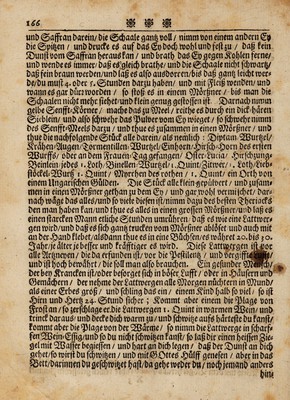 166.
und Saffran darein/ die Schaale gantz voll / nimm von einem andern Ey
die Spitzen / und drucke es auf das Ey doch wohl und fest zu / daß kein
Dunst vom Saffran heraus kan / und brath das Ey gegen Kohlen ferne/
und wende es immer/ daß es gleich brathe/ und die Schaale nicht schwartz/
daß sein braun werden/ und laß es also ausdorren/ biß daß gantz leicht wer-
de/ du must 4. oder 5. Stunden darzu haben/ und mit Fleiß wenden/ und
wann es gar dürr worden / so stoß es in einem Mörßner / biß man die
Schaalen nicht mehr siehet/ und klein genug gestossen ist. Darnach nimm
gelbe Senff-Körner / mache das zu Meel / reitle es durch ein dick hären
Sieblein/ und also schwehr das Pulver vom Ey wieget/ so schwehr nimm
des Senff-Meels darzu / und thue es zusammen in einen Mörßner / und
thue die nachfolgende Stück alle darein/ als nemlich: Diptam Wurtzel/
Krähen-Augen/Tormentillen-Wurtzel/Einhorn/Hirsch-Horn des ersten
Wurffs/ oder an dem Frauen-Tag gefangen/
Beinlein jedes 1. Loth/
1. Quint/ Myrrhen des rothen / 1. Quint/ ein Orth von
einem Ungarischen Gülden. Die Stück alle klein gepülvert / und zusam-
men in einen Mörßner gethan zu dem Ey / und gar wohl vermischet/ dar-
nach wäge das alles/ und so viele diesen ist/ nimm dazu des besten Theriacks
den man haben kan/ und thue es alles in einen grossen Mörßner/ und laß es
einen starcken Mann etliche Stunden umrühren/ daß es wie eine Lattwer-
gen wird/ und daß es sich gantz trucken vom Mörßner ablöset und auch nit
an der Hand klebet/ alsdann thue es in eine Büchsen/ es währet 20. biß 30.
Jahr/ je älter je besser und kräfftiger es wird. Diese Lattwergen ist vor
alle Artzneyen / die da erfunden ist/ vor die Pestilentz / und
und ist hoch bewährt / die soll man also brauchen. Ein gesunder
der bey Krancken ist/ oder besorget sich in böser Lufft / oder in Häusern und
Gemächern / der nehme der Lattwergen alle Morgen nüchtern in Mund/
als einer Erbes groß / und schling das ein / einem Kind halb so viel / so ist
Hirn und Hertz 24. Stund sicher; Kommt aber einem die Plage von
Frost an / so zerschlage er die Lattwergen 1. Quint in warmen Wein / und
trinck daraus/ und decke dich wohl zu / und schwitze aufs härteste du kanst/
kommt aber die Plage von der Wärme / so nimm die Lattwerge in scharf-
fen Wein-Essig/ und so du nicht schwitzen kanst/ so laß dir einen heissen Zie-
gel mit Wasser begiessen / und hart an dich legen / daß der Dunst an dich
gehet/ so wirst du schwitzen / und mit Gottes Hülff genesen / aber in das
Bett/ darinnen du geschwitzet hast/ da gehe weder du / noch jemand anders
hin-